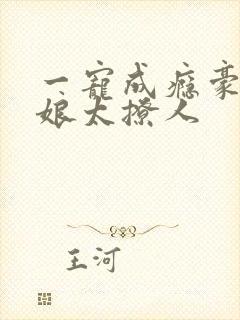 一宠成瘾豪
娘太撩人
王河